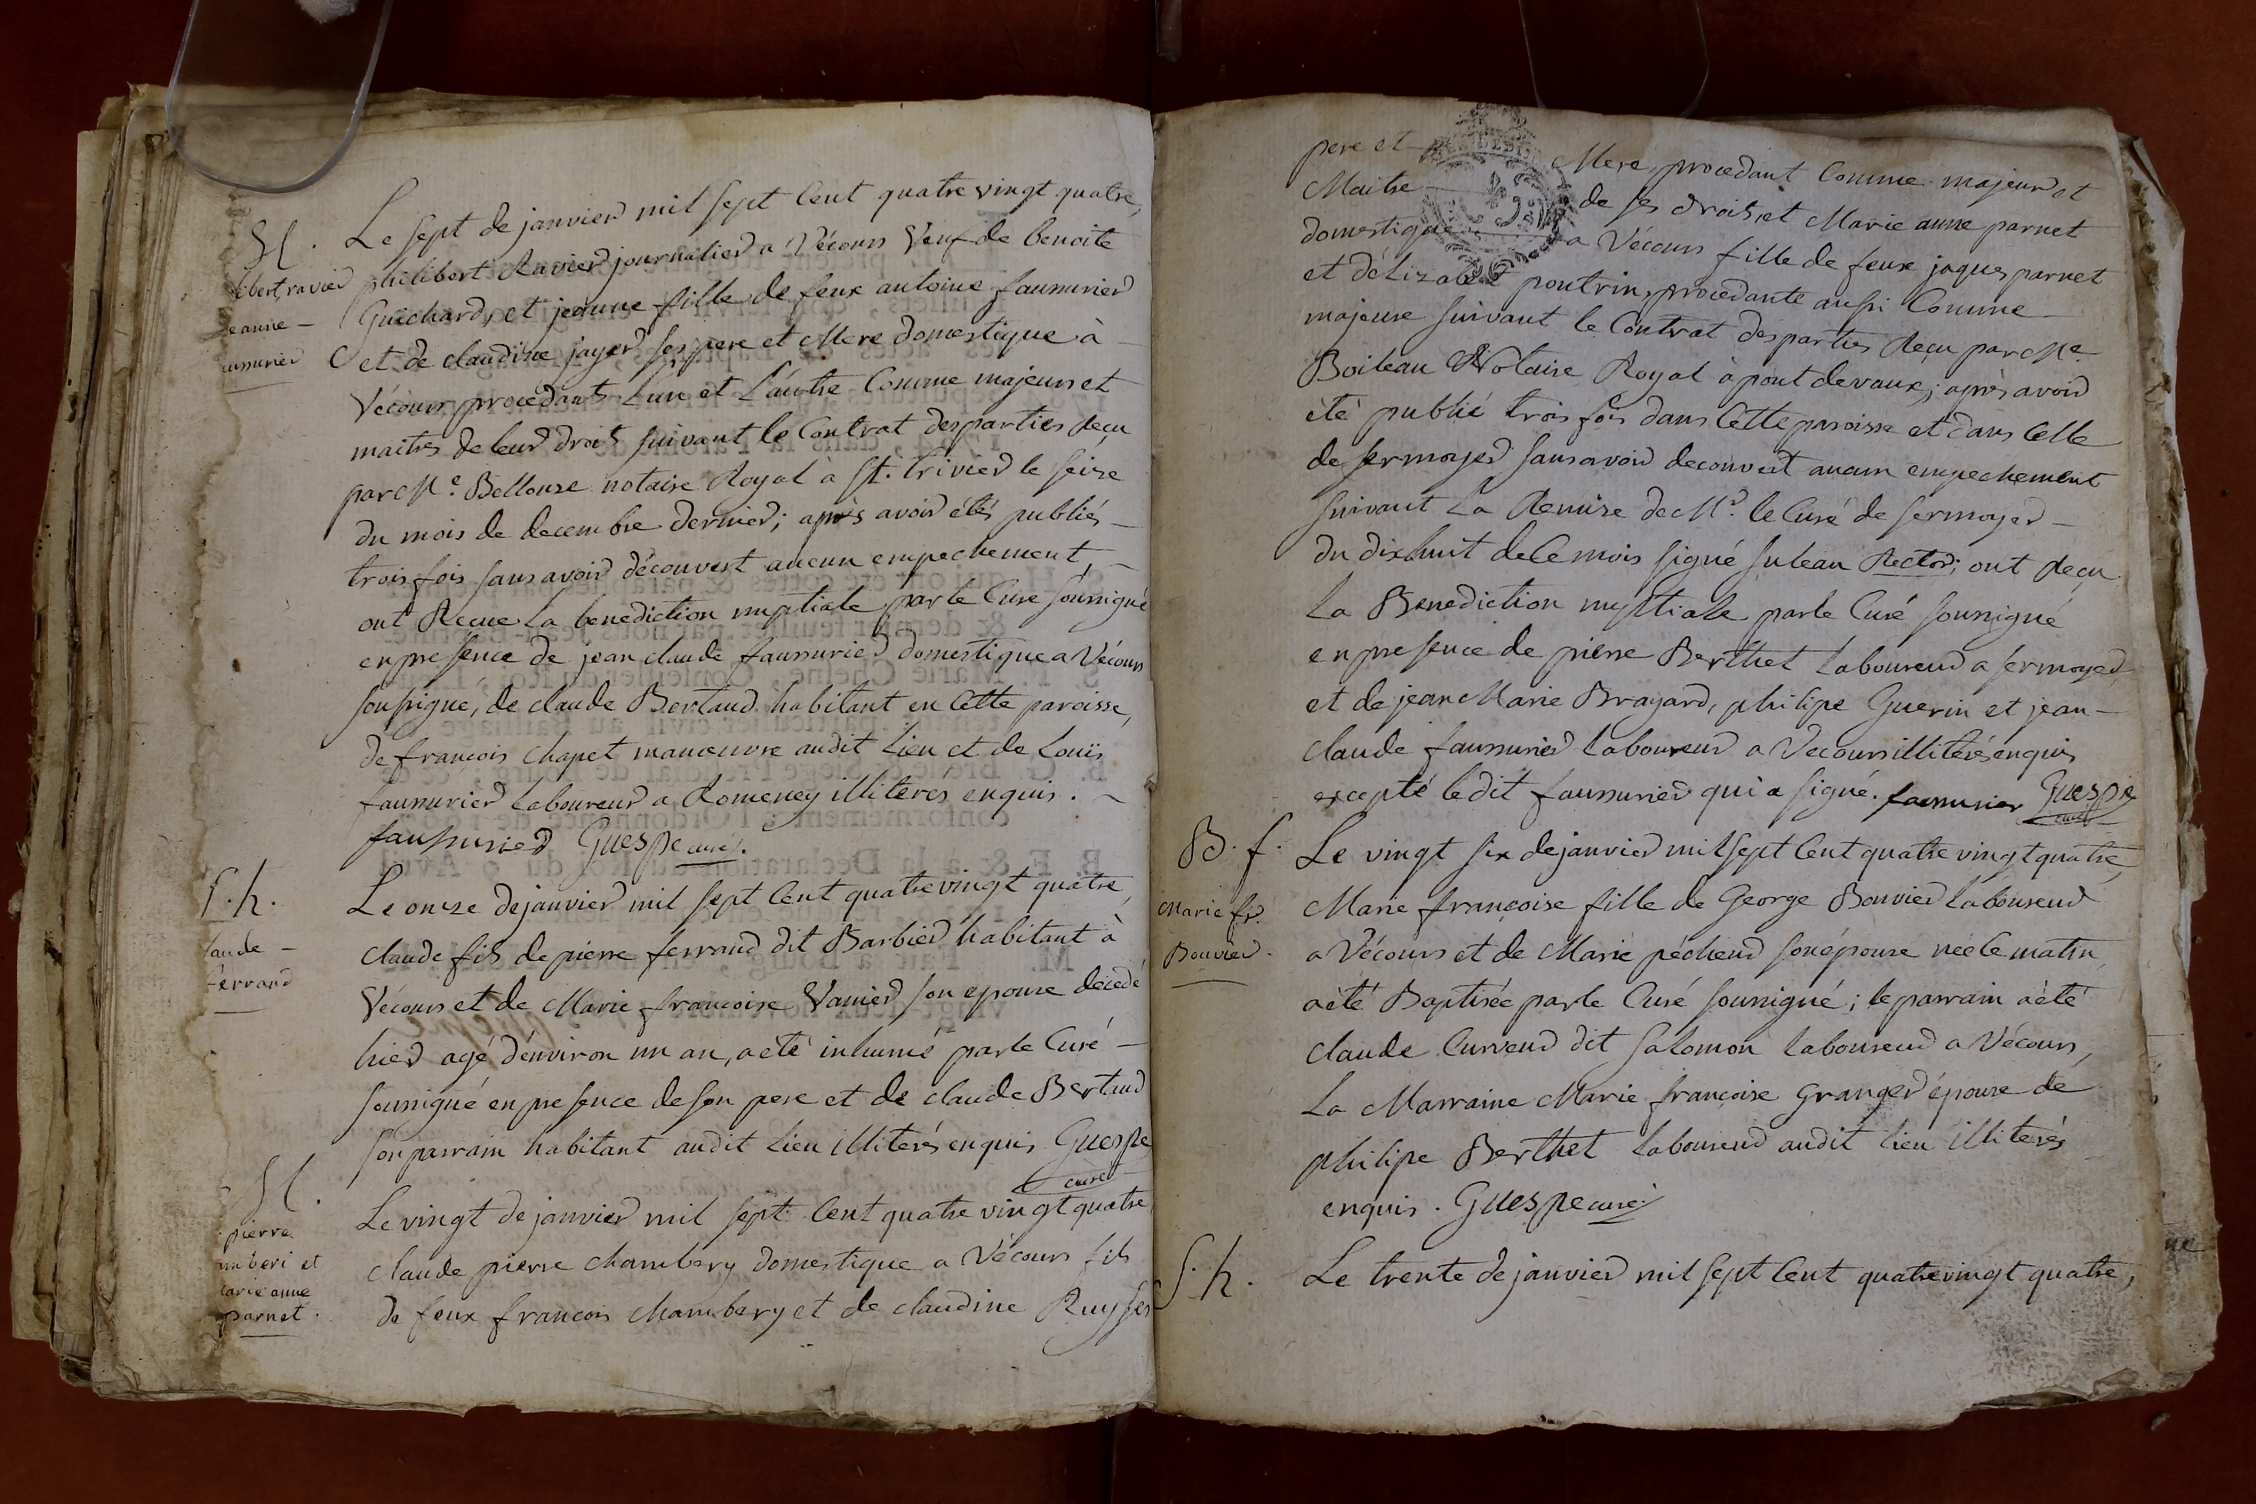 M.
libert ravier
Jeanne –
aussurier
Le sept de janvier mil sept Cent quatre vingt quatre,
philibert Ravier journalier a Vécours Veuf de benoite
Guichard, et jeanne fille de feux antoine faussurier
et de claudine jayer ses pere et Mere domestique à
Vécours procedants L'un et L'autre Comme majeurs et
maitres de leur droit suivant le Contrat des parties Reçu
par Me. Bellouze notaire Royal a St. trivier le seize
du mois de decembre dernier; après avoir étés publiés –
trois fois sans avoir découvert aucun empechement, –
ont Recue La benediction nuptiale par le Curé soussigné
en presence de jean claude faussurier domestique a Vécours
soussigné, de claude Bertaud habitant en Cette paroisse,
de françois chapet manœuvre audit Lieu et de Louis
faussurier Laboureur a Romeney illiteres enquis. ~
faussurier Guespe curé.
S. h.
laude –
ferrand
Le onze de janvier mil sept Cent quatre vingt quatre,
claude fils de pierre ferrand dit Barbier habitant à
Vécours et de Marie francoise Vanier son epouse décedé
hier agé d'environ un an, a été inhumé par le Curé –
soussigné en presence de son pere et de claude Bertaud
son parrain habitant audit Lieu illiterés enquis Guespe
curé
M.
pierre
mberi et
arie anne
parnet.
Le vingt de janvier mil sept Cent quatre vingt quatre
claude pierre chambery domestique a Vécours fils
de feux francois chambery et de claudine Ruy ses
pere et Mere, procedant Comme majeur et
Maitre de ses droits, et Marie anne parnet
domestique a Vécours fille de feux jaques parnet
et d'élizabet poutrin, procedante aussi Comme –
majeure suivant le Contrat des parties Reçu par Me.
Boiteau Notaire Royal à pont devaux; après avoir
été publié trois fois dans Cette paroisse et dans Celle
de sermoyer sans avoir decouvert aucun empechement
suivant La Remise de Mr. le Curé de sermoyer –
du dix huit de Ce mois signé suleau Rector; ont Reçu
La Benediction nuptiale par le Curé soussigné
en presence de pierre Berthet Laboureur a sermoyer
et de jean Marie Brayard, philipe Guerin et jean –
claude faussurier Laboureur a Vecours illiterés enquis
excepté le dit faussurier qui a signé. faussurier Guespe
curé
B. f.
Marie fr.
Bouvier.
Le vingt six de janvier mil sept Cent quatre vingt quatre,
Marie françoise fille de George Bouvier Laboureur
a Vécours et de Marie pécheur son épouse née Ce matin
a été Baptisée par le Curé soussigné; le parrain a été
claude Curveur dit salomon Laboureur a Vécours,
La Marraine Marie françoise Granger épouse de
philipe Berthet Laboureur audit lieu illiterés
enquis. Guespe curé
S. h.
Le trente de janvier mil sept Cent quatre vingt quatre,